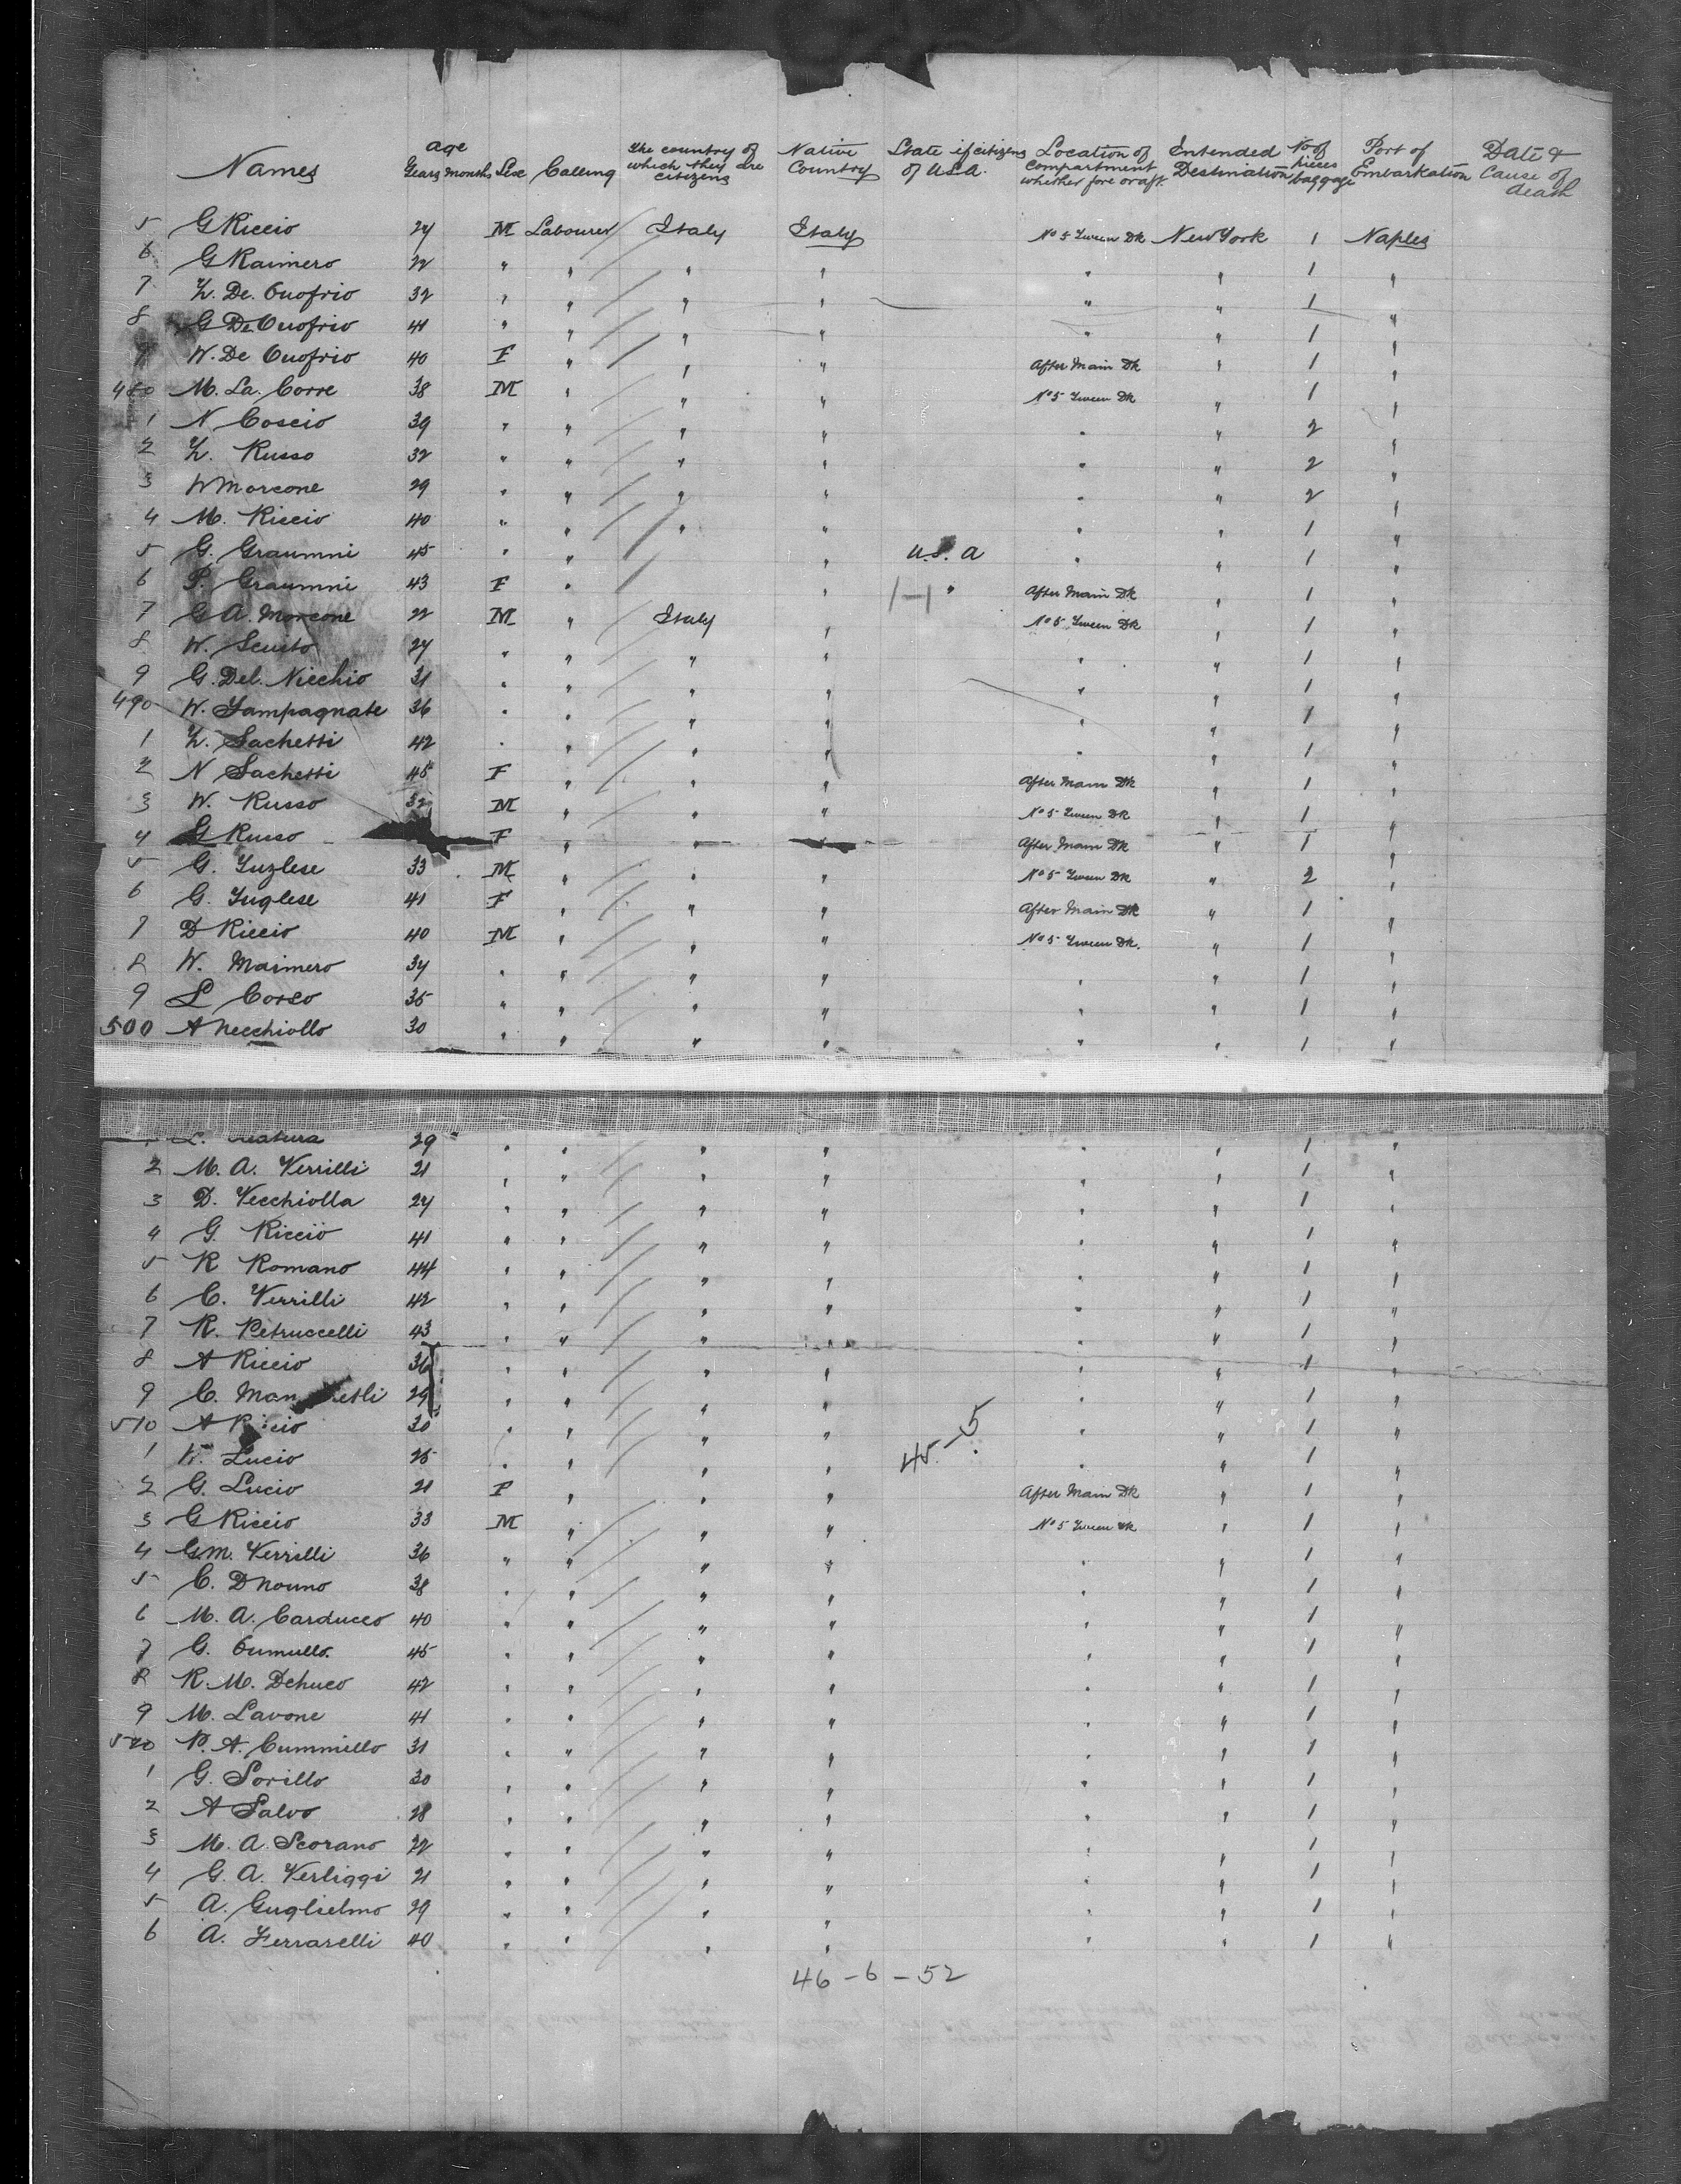 Names age Years months Sex Calling the country of which they are citizens Native Country State if citizens of U.S.A. Location of compartment whether fore or aft. Intended Destination No of pieces baggage Port of Embarkation Date & Cause of death
5 G Riccio 24 M Labourer Italy Italy No 5 Tween Dk New York 1 Naples
6 G Raimero 22 " " " " " " 1 "
7 L. De. Onofrio 32 " " " " " " 1 "
8 G De Onofrio 41 " " " " " " 1 "
9 W. De Onofrio 40 F " " " After Main Dk " 1 "
480 M. La. Corre 38 M " " " No 5 Tween Dk " 1 "
1 N Coscio 39 " " " " " " 2 "
2 L. Russo 32 " " " " " " 2 "
3 W Morcone 29 " " " " " " 2 "
4 M. Riccio 40 " " " " " " 1 "
5 G. Graumni 45 " " " U.S. A " " 1 "
6 P. Graumni 43 F " " " After Main Dk " 1 "
7 G A. Morcone 22 M " Italy " No 5 Tween Dk " 1 "
8 W. Scuito 24 " " " " " " 1 "
9 G. Del. Nicchio 31 " " " " " " 1 "
490 W. Iampagnate 36 " " " " " " 1 "
1 L. Sachetti 42 " " " " " " 1 "
2 N Sachetti 45 F " " " After Main Dk " 1 "
3 W. Russo 32 M " " " No 5 Tween Dk " 1 "
4 G Russo F " " " After Main Dk " 1 "
5 G. Iuzlese 33 M " " " No 5 Tween Dk " 2 "
6 G. Inglese 41 F " " " After Main Dk " 1 "
7 D Riccio 40 M " " " No 5 Tween Dk. " 1 "
8 W. Maimero 34 " " " " " " 1 "
9 L Corso 35 " " " " " " 1 "
500 A Necchiollo 30 " " " " " " 1 "
29 " " " " " " 1 "
2 M. A. Verrilli 21 " " " " " " 1 "
3 D. Vecchiolla 24 " " " " " " 1 "
4 G. Riccio 41 " " " " " " 1 "
5 R Romano 44 " " " " " " 1 "
6 C. Verrilli 42 " " " " " " 1 "
7 R. Petruccelli 43 " " " " " " 1 "
8 A Riccio 36 " " " " " " 1 "
9 C. 29 " " " " " " 1 "
510 A Riccio 30 " " " " " " 1 "
45-5
1 W. Lucio 25 " " " " " " 1 "
2 G. Lucio 21 F " " " After Main Dk " 1 "
3 G Riccio 33 M " " " No 5 Tween Dk " 1 "
4 G.M. Verrilli 36 " " " " " " 1 "
5 C. DNouno 38 " " " " " " 1 "
6 M. A. Carducco 40 " " " " " " 1 "
7 G. Cumullo. 45 " " " " " " 1 "
8 R. M. Dchuco 42 " " " " " " 1 "
9 M. Lavone 41 " " " " " " 1 "
520 P. A. Cummillo 31 " " " " " " 1 "
1 G. Sorillo 30 " " " " " " 1 "
2 A Salvo 28 " " " " " " 1 "
3 M. A. Scorano 22 " " " " " " 1 "
4 G. A. Verliggi 21 " " " " " " 1 "
5 A. Guglielmo 29 " " " " " " 1 "
6 A. Ferrarelli 40 " " " " " " 1 "
46-6-52